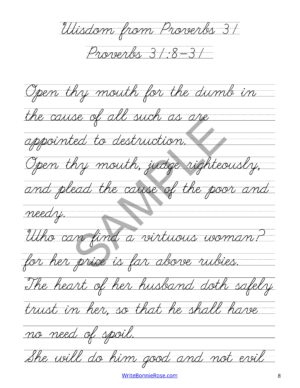 Wisdom from Proverbs 31
Proverbs 31:8-31
Open thy mouth for the dumb in
the cause of all such as are
appointed to destruction.
Open thy mouth, judge righteously,
and plead the cause of the poor and
needy.
Who can find a virtuous woman?
for her price is far above rubies.
The heart of her husband doth safely
trust in her, so that he shall have
no need of spoil.
She will do him good and not evil
SAMPLE
WriteBonnieRose.com
8